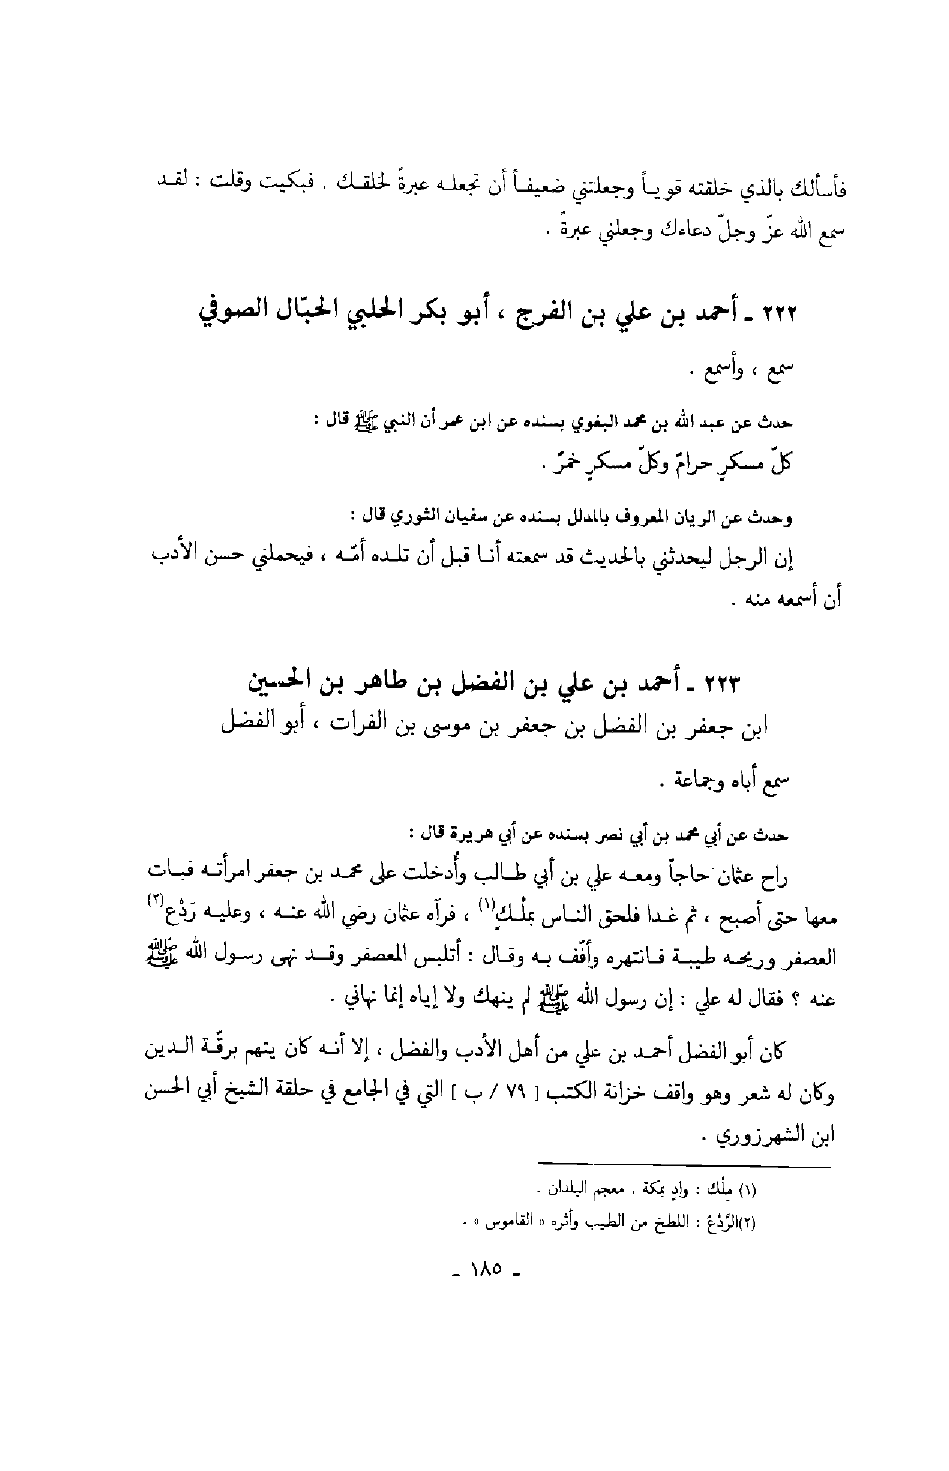 فأسألك بالذي خلقته قوياً وجعلتني ضعيفاً أن تجعله عبرةً لخلقك . فبكيت وقلت : لقد
سمع الله عزّ وجلّ دعاءك وجعلني عبرةً .
٢٢٢ ـ أحمد بن علي بن الفرج ، أبو بكر الحلبي الحبّال الصوفي
سمع ، وأسمع .
حدث عن عبد الله بن محمد البغوي بسنده عن ابن عمر أن النبي ﷺ قال :
كلّ مسكرٍ حرامٌ وكلّ مسكرٍ خمرٌ .
وحدث عن الريان المعروف بالمدلل بسنده عن سفيان الثوري قال :
إن الرجل ليحدثني بالحديث قد سمعته أنا قبل أن تلده أمّه ، فيحملني حسن الأدب
أن أسمعه منه .
٢٢٣ ـ أحمد بن علي بن الفضل بن طاهر بن الحسين
ابن جعفر بن الفضل بن جعفر بن موسى بن الفرات ، أبو الفضل
سمع أباه وجماعة .
حدث عن أبي محمد بن أبي نصر بسنده عن أبي هريرة قال :
راح عثمان حاجاً ومعه علي بن أبي طالب وأُدخلت على محمد بن جعفر امرأته فبات
معها حتى أصبح ، ثم غدا فلحق الناس بمَلْكٍ(١) ، فرآه عثمان رضي الله عنه ، وعليه رَدْع(٢)
العصفر وريحه طيبة فانتهره وأفّف به وقال : أتلبس المعصفر وقد نهى رسول الله ﷺ
عنه ؟ فقال له علي : إن رسول الله ﷺ لم ينهك ولا إياه إنما نهاني .
كان أبو الفضل أحمد بن علي من أهل الأدب والفضل ، إلا أنه كان يتهم برقّة الدين
وكان له شعر وهو واقف خزانة الكتب [ ٧٩ / ب ] التي في الجامع في حلقة الشيخ أبي الحسن
ابن الشهرزوري .
(١) مِلْك : وادٍ بمكة . معجم البلدان .
(٢) الرَّدْع : اللطخ من الطيب وأثره « القاموس » .
ـ ١٨٥ ـ